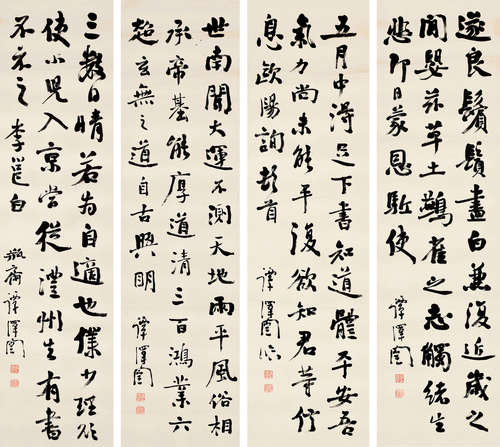 遂良鬚鬢盡白兼復近歲之
間嬰茲草土鷰雀之志觸緒生
悲即日蒙恩駈使
譚澤闓
五月中得足下書知道體平安吾
氣力尚未能平復欲知君等信
息歐陽詢頓首
譚澤闓臨
世南聞大運不測天地兩平風俗相
承帝基能厚道清三百鴻業六
超玄無之道自古興明
譚澤闓
三數日晴若為自適也僕少理欲
使小兒入京當從澧州生有書
不示之李邕白
瓶齋譚澤闓